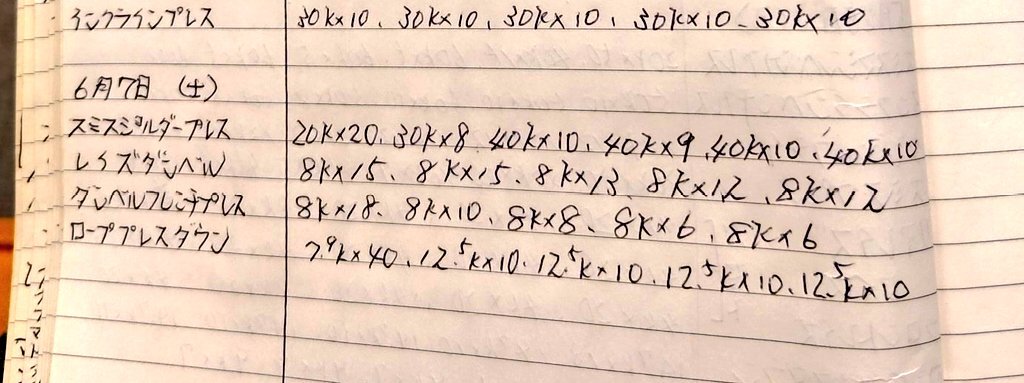 インクラインプレス 30k×10、30k×10、30k×10、30k×10、30k×10
6月7日 (土)
スミスショルダープレス 20k×20、30k×8、40k×10、40k×9、40k×10、40k×10
レイズダンベル 8k×15、8k×15、8k×13、8k×12、8k×12
ダンベルフレンチプレス 8k×18、8k×10、8k×8、8k×6、8k×6
ローププレスダウン 7.9k×40、12.5k×10、12.5k×10、12.5k×10、12.5k×10